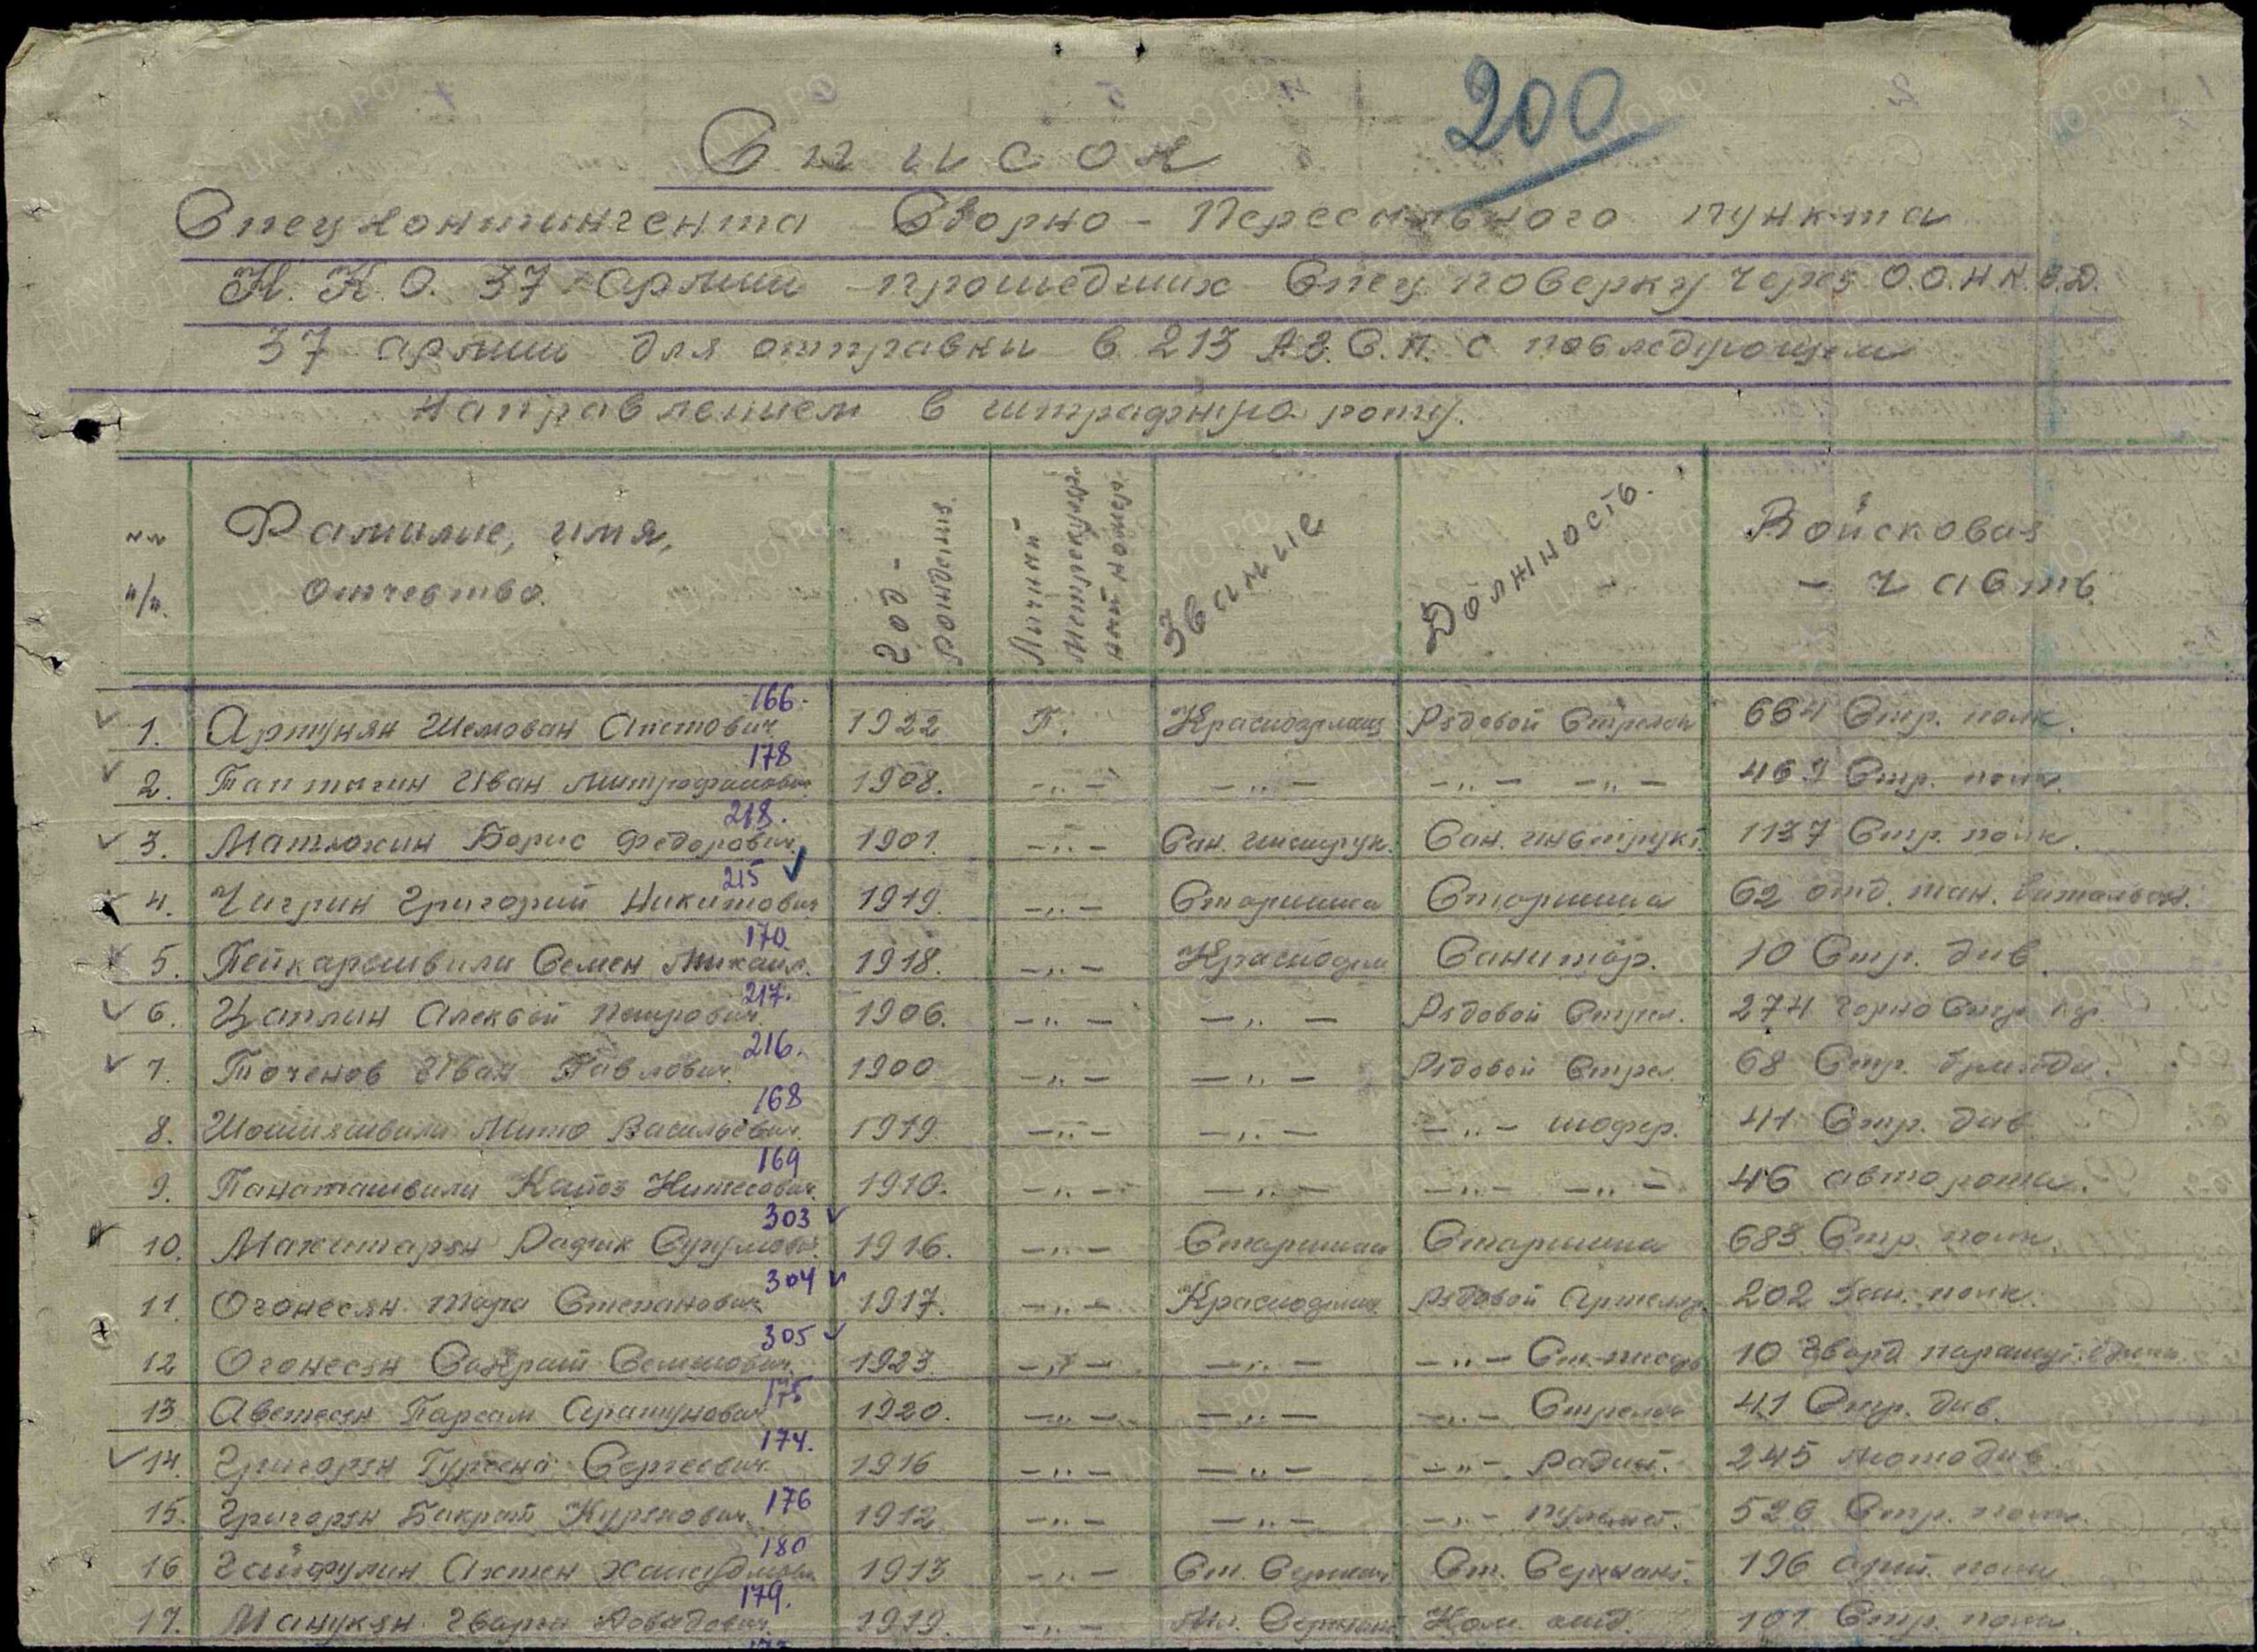 200
Список
Спецконтингента Сборно - Пересыльного пункта
Н.К.О. 37 армии прошедших Спец поверку через О.О.Н.К.В.Д.
37 армии для отправки в 213 А.З.С.П. с последующем
направлением в штрафную роту.
№№ п/п. Фамилие, имя, отчество. Год рождения Личный номер Звание Должность. Войсковая - часть
166.
1. Арутунян 1922 П. Красноармеец Рядовой Стрелок 664 Стр. полк.
178
2. Таптагин Иван Митрофанович 1908. -„- -„- -„- -„- 469 Стр. полк.
218.
3. Матюхин Борис Федорович 1901. -„- Сан. инструк. Сан. инструкт. 1137 Стр. полк.
215
4. Чигрин Григорий Никитович 1919. -„- Старшина Старшина 62 отд. тан. батальон.
170
5. Пейкаришвили Семен Михаил. 1918. -„- Красноарм Санитар. 10 Стр. див.
217.
6. Цатлин Алексей Петрович 1906. -„- -„- Рядовой Стрел. 274 горно Стр.
216.
7. Точенов Иван Павлович 1900 -„- -„- Рядовой Стрел. 68 Стр. бригада.
168
8. Васильевич 1919 -„- -„- -„- шофер. 41 Стр. див
169
9. Панаташвили 1910. -„- -„- -„- -„- 46 авторота.
303
10. Мхитарян Радик 1916. -„- Старшина Старшина 683 Стр. полк.
304
11 Оганесян Степанович 1917. -„- Красноармеец Рядовой Артелер. 202 Зап. полк.
305
12 Оганесян 1923. -„- -„- -„- 10 Гвард парашут.
175
13 Аветесян Парсам 1920. -„- -„- -„- Стрелок 41 Стр. див.
174.
14. Григорян Гургена Сергеевич 1916 -„- -„- -„- Радист. 245 мотодив.
176
15. Григорян Бакрат 1912 -„- -„- -„- пулемет. 526 Стр. полк.
180
16 Гайфулин 1913 -„- Ст. Сержант Ст. Сержант. 196 арт. полк
179.
17. Манукян 1919. -„- Мл. Сержант Ком. отд. 101 Стр. полк.